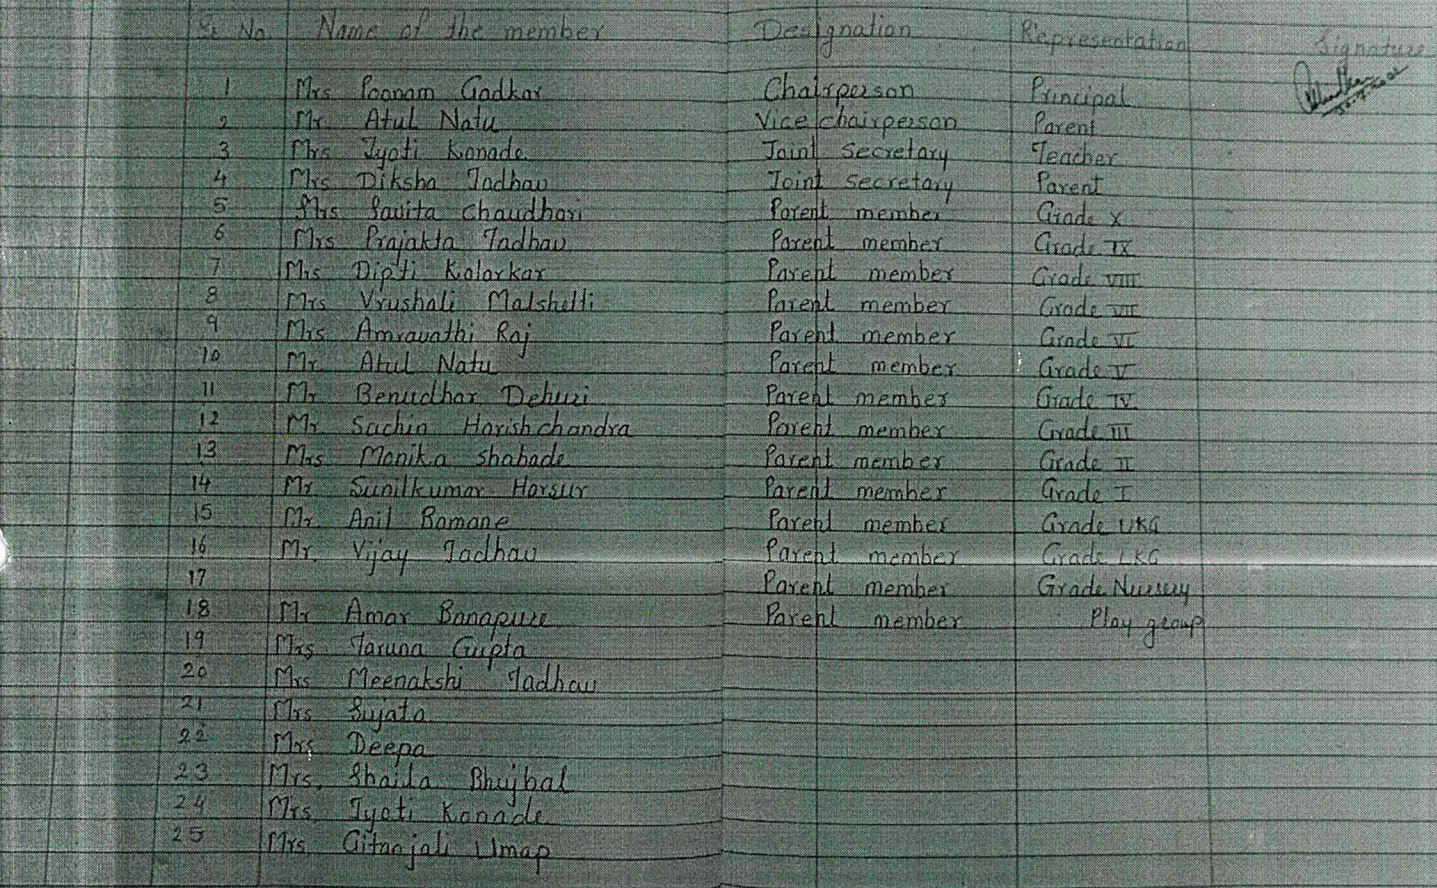 Sr No. Name of the member Designation Representation Signature
1 Mrs Poonam Gadkar Chairperson Principal
2 Mr. Atul Natu Vice chairperson Parent
3 Mrs Jyoti Kanade Joint secretary Teacher
4 Mrs Diksha Jadhav Joint secretary Parent
5 Mrs Savita Chaudhari Parent member Grade X
6 Mrs Prajakta Jadhav Parent member Grade IX
7 Mrs Dipti Kalarkar Parent member Grade VIII
8 Mrs Vrushali Malshetti Parent member Grade VII
9 Mrs Amravathi Raj Parent member Grade VI
10 Mr Atul Natu Parent member Grade V
11 Mr Benudhar Dehuri Parent member Grade IV
12 Mr Sachin Harishchandra Parent member Grade III
13 Mrs Monika Shahade Parent member Grade II
14 Mr Sunilkumar Harsur Parent member Grade I
15 Mr Anil Bamane Parent member Grade UKG
16 Mr. Vijay Jadhav Parent member Grade LKG
17 Parent member Grade Nursery
18 Mr Amar Banapure Parent member Play group
19 Mrs Taruna Gupta
20 Mrs Meenakshi Jadhav
21 Mrs Sujata
22 Mrs Deepa
23 Mrs. Shaila Bhujbal
24 Mrs. Jyoti Kanade
25 Mrs. Gitanjali Umap